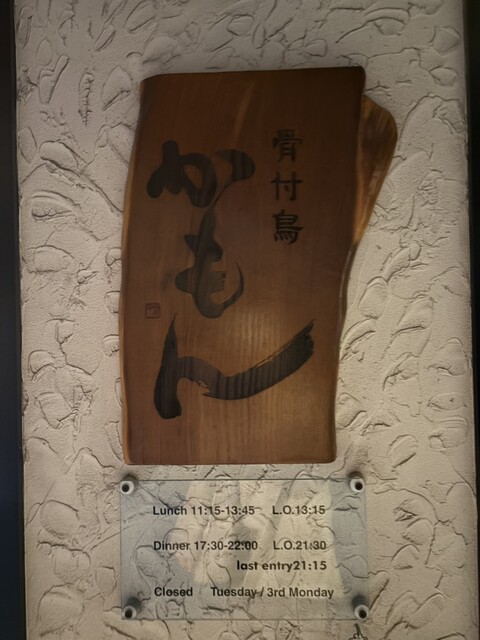 骨付鳥
かもん
Lunch 11:15-13:45 L.O.13:15
Dinner 17:30-22:00 L.O.21:30
last entry21:15
Closed Tuesday / 3rd Monday